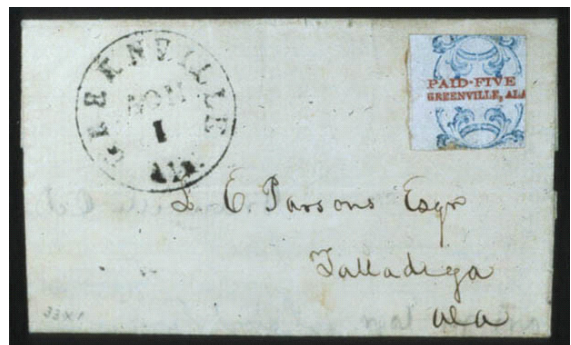 GREENVILLE
NOV
1
Al.
PAID-FIVE
GREENVILLE, ALA
L E Parsons Esqr
Talladega
Ala
33X1